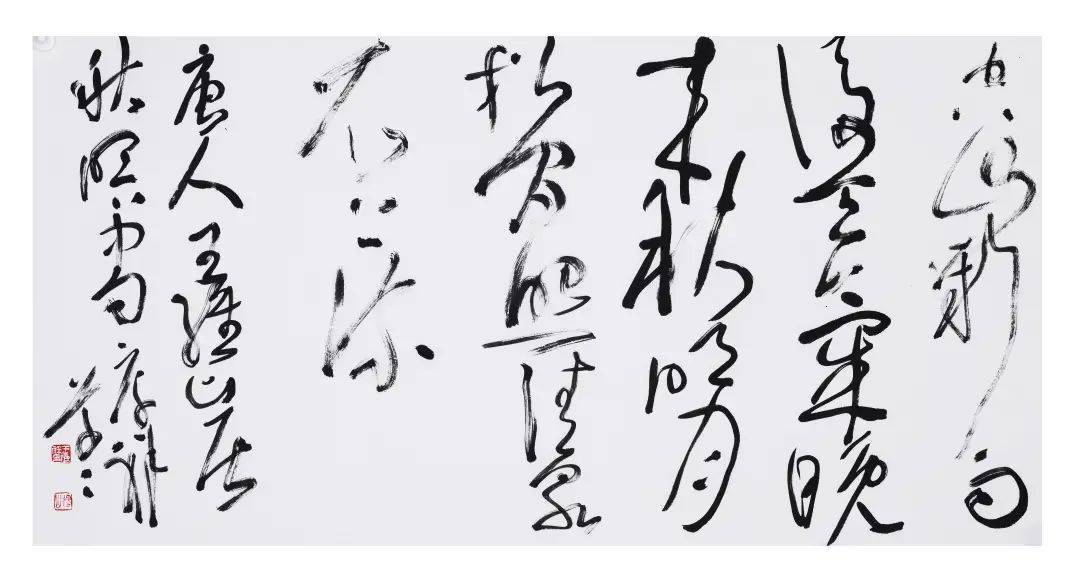 空山新雨
後天氣晚
来秋明月
松间照清泉
石上流
唐人王維山居
秋暝句